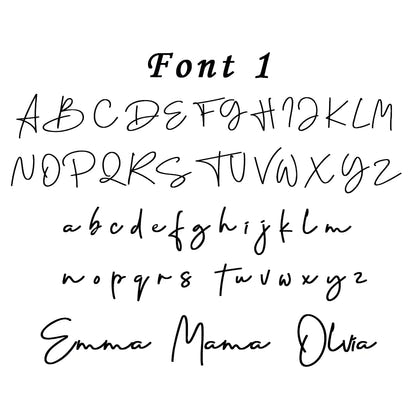 Font 1
A B C D E F G H I J K L M
N O P Q R S T U V W X Y Z
a b c d e f g h i j k l m
n o p q r s t u v w x y z
Emma Mama Olvia